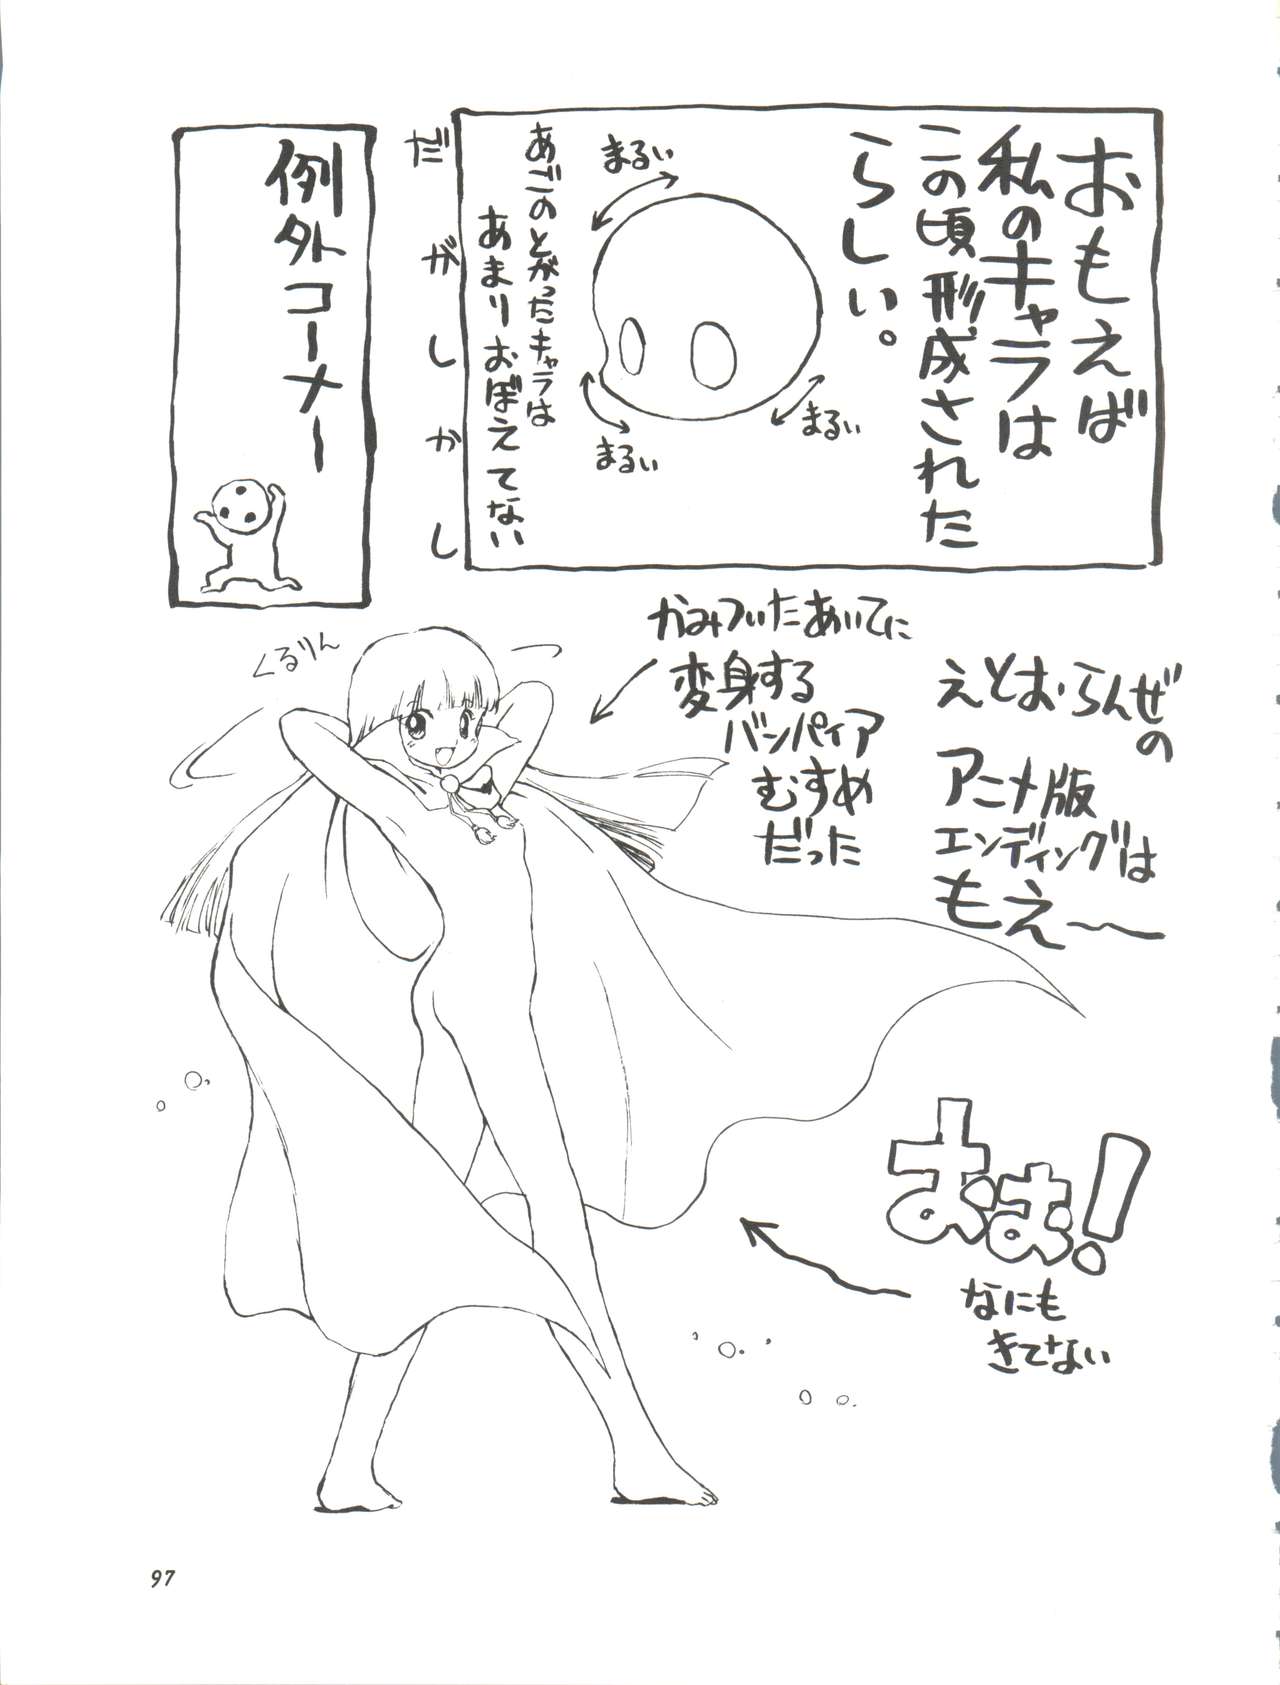 おもえば
私のキャラは
この頃形成された
らしい。
まるい
まるい
まるい
あごのとがったキャラは
あまりおぼえてない
だがしかし
例外コーナー
くるりん
かみついたあいてに
変身する
バンパイア
むすめ
だった
えとおらんぜの
アニメ版
エンディングは
もえ〜
おぉ!
なにも
きてない
97